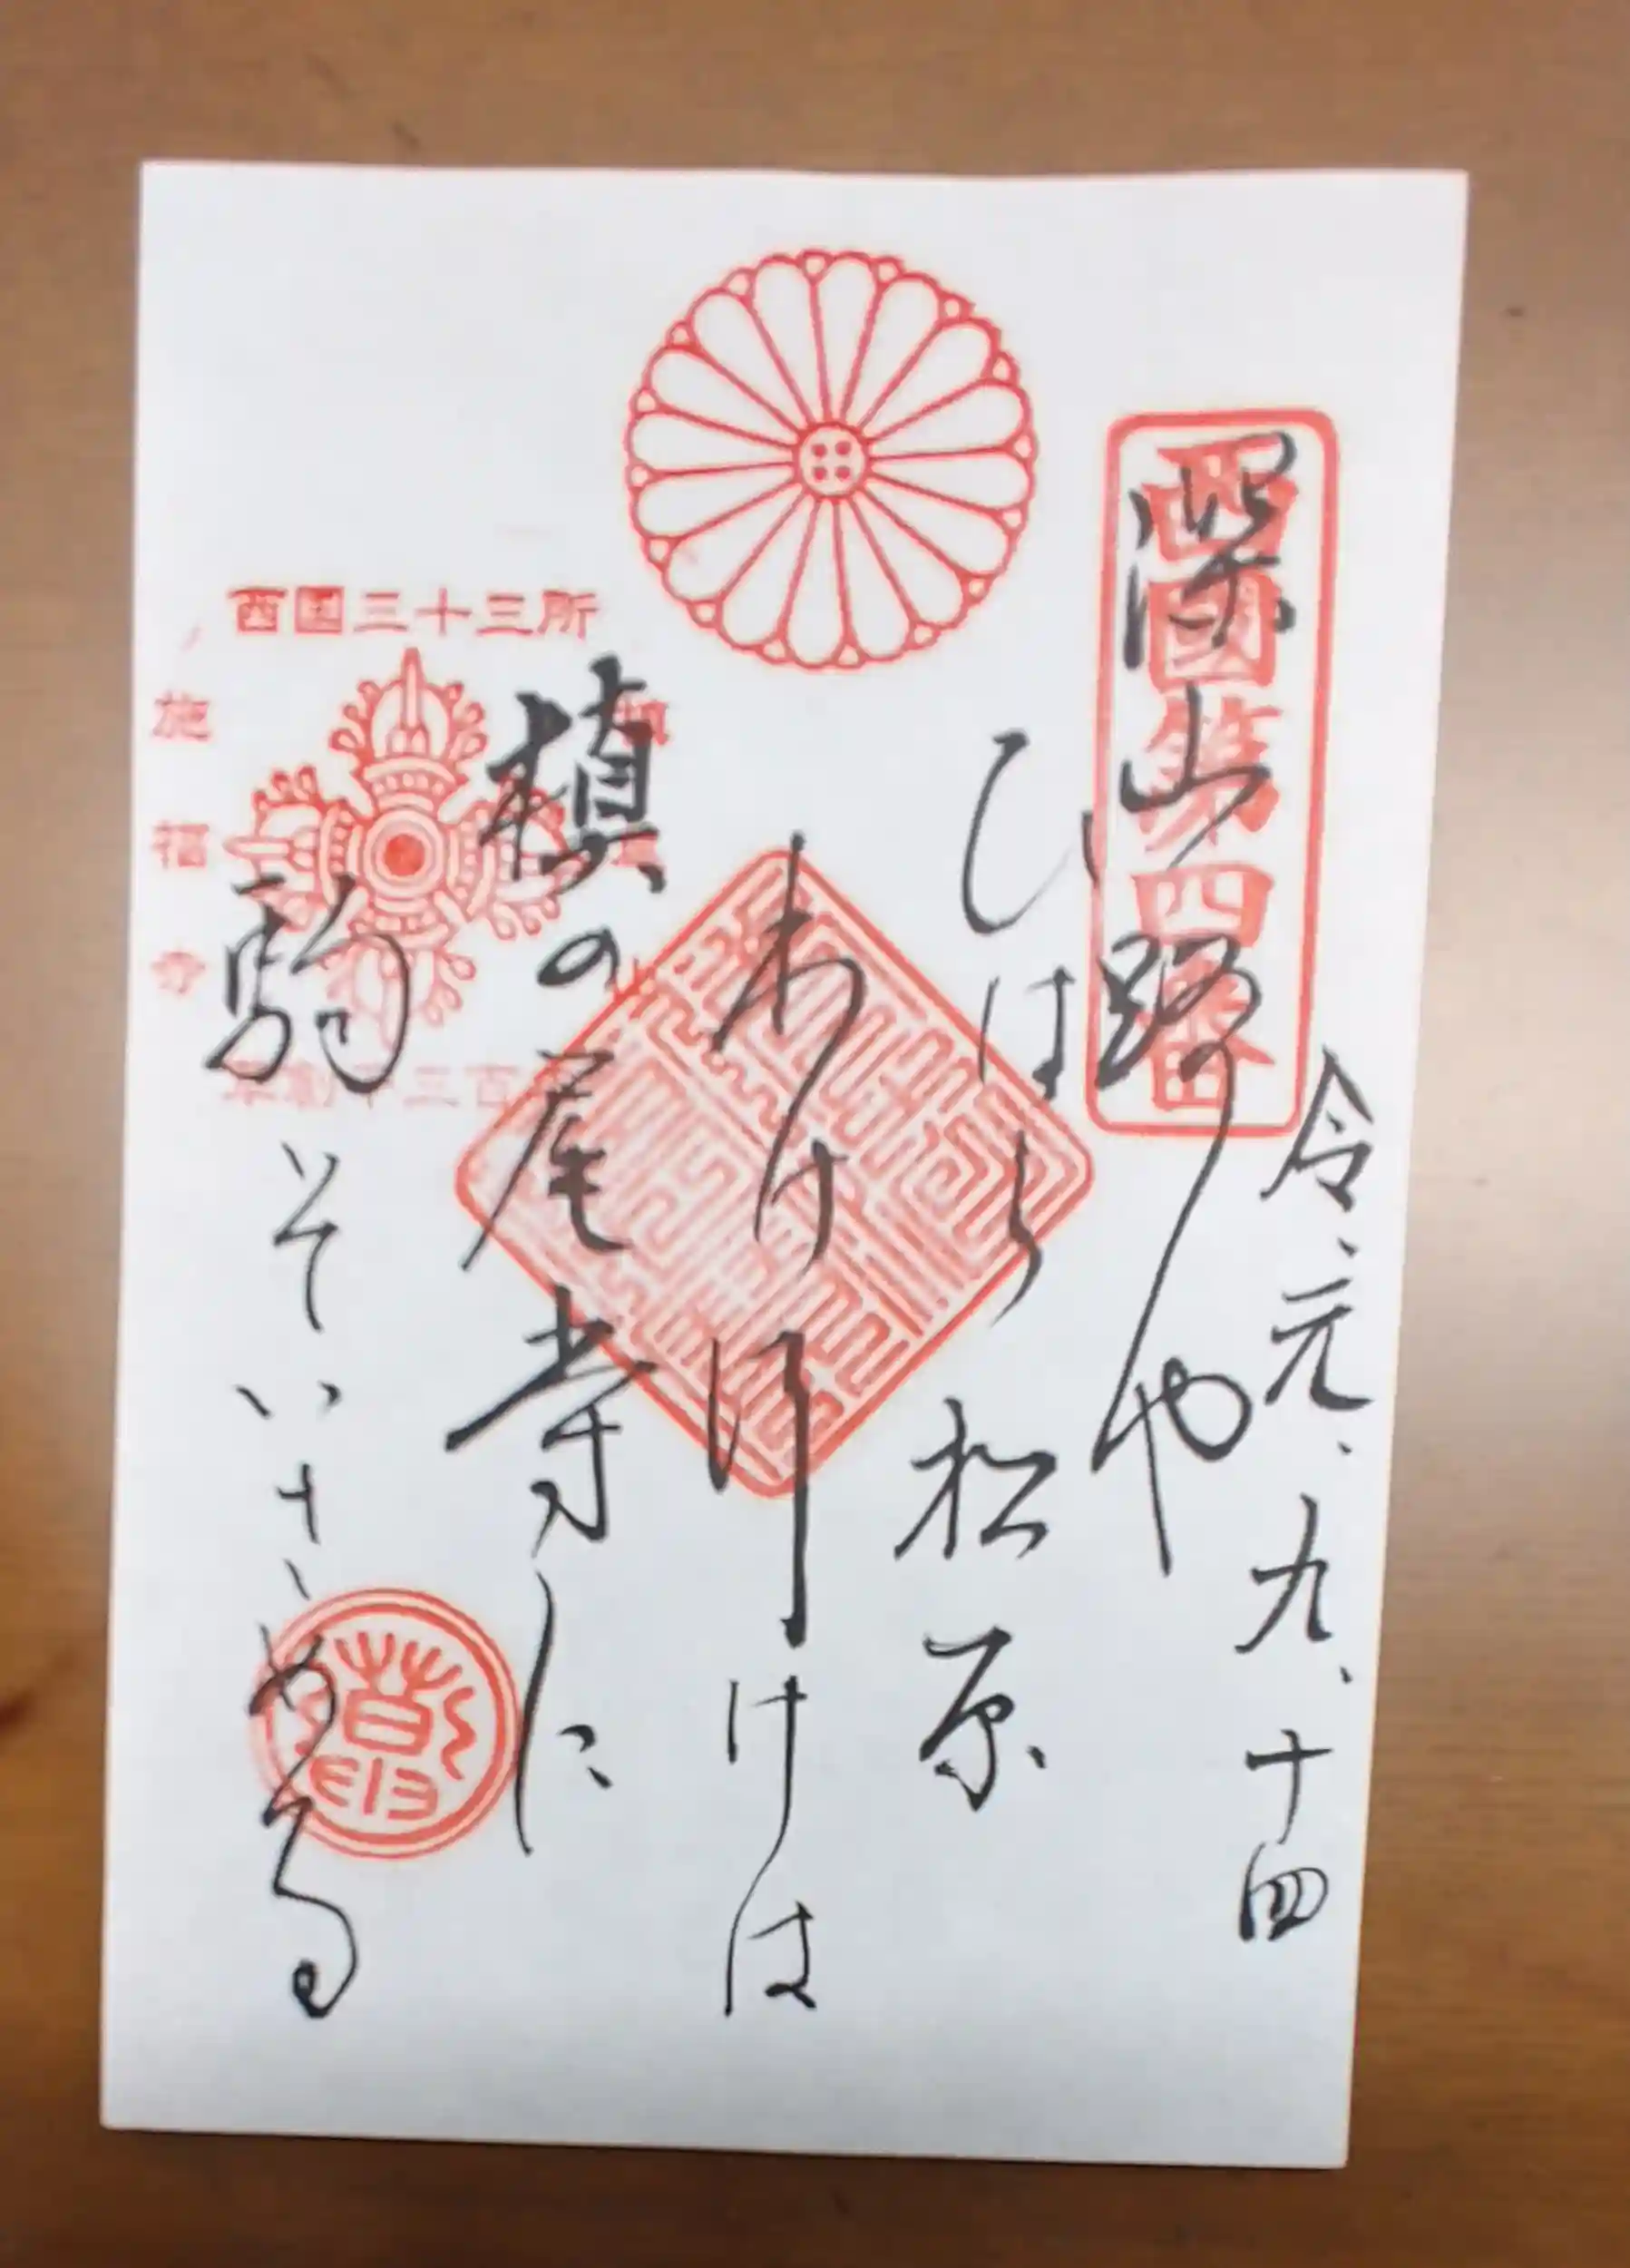 令、元、九、十四
西國第四番
深山路や
ひはら松原
わけ行けは
槇の尾寺に
駒そいさめる
西国三十三所
施福寺